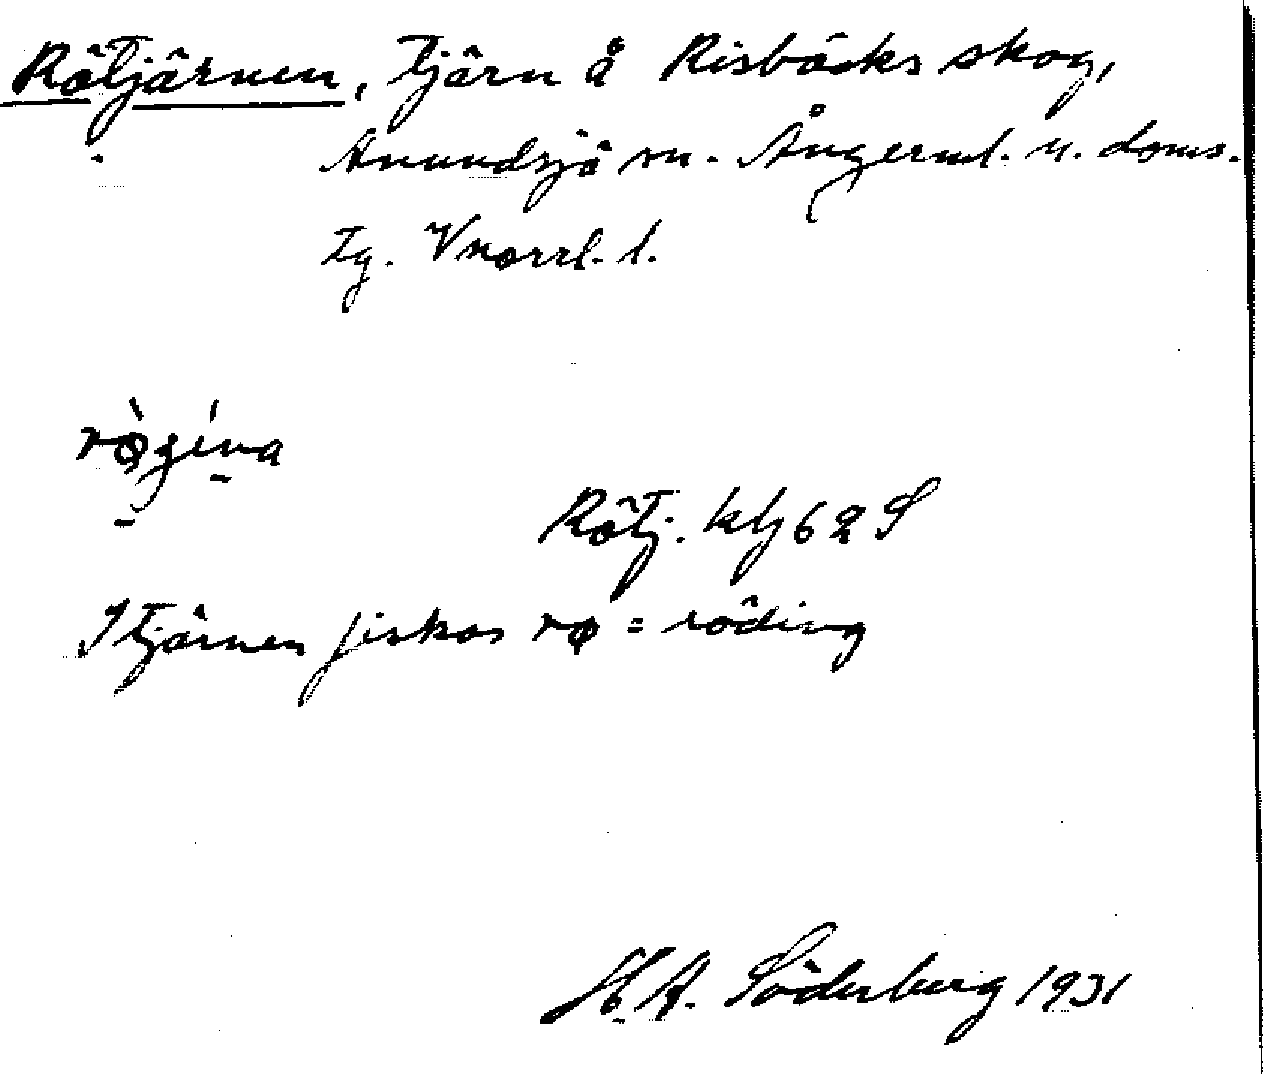 Rötjärnen, tjärn å Risbäcks skog,
Anundsjö sn. Ångerml. n. doms.
Tg. Vnorrl. l.
Rötj. klj 62 S
I tjärnen fiskas rø = röding
H. A. Söderberg 1931